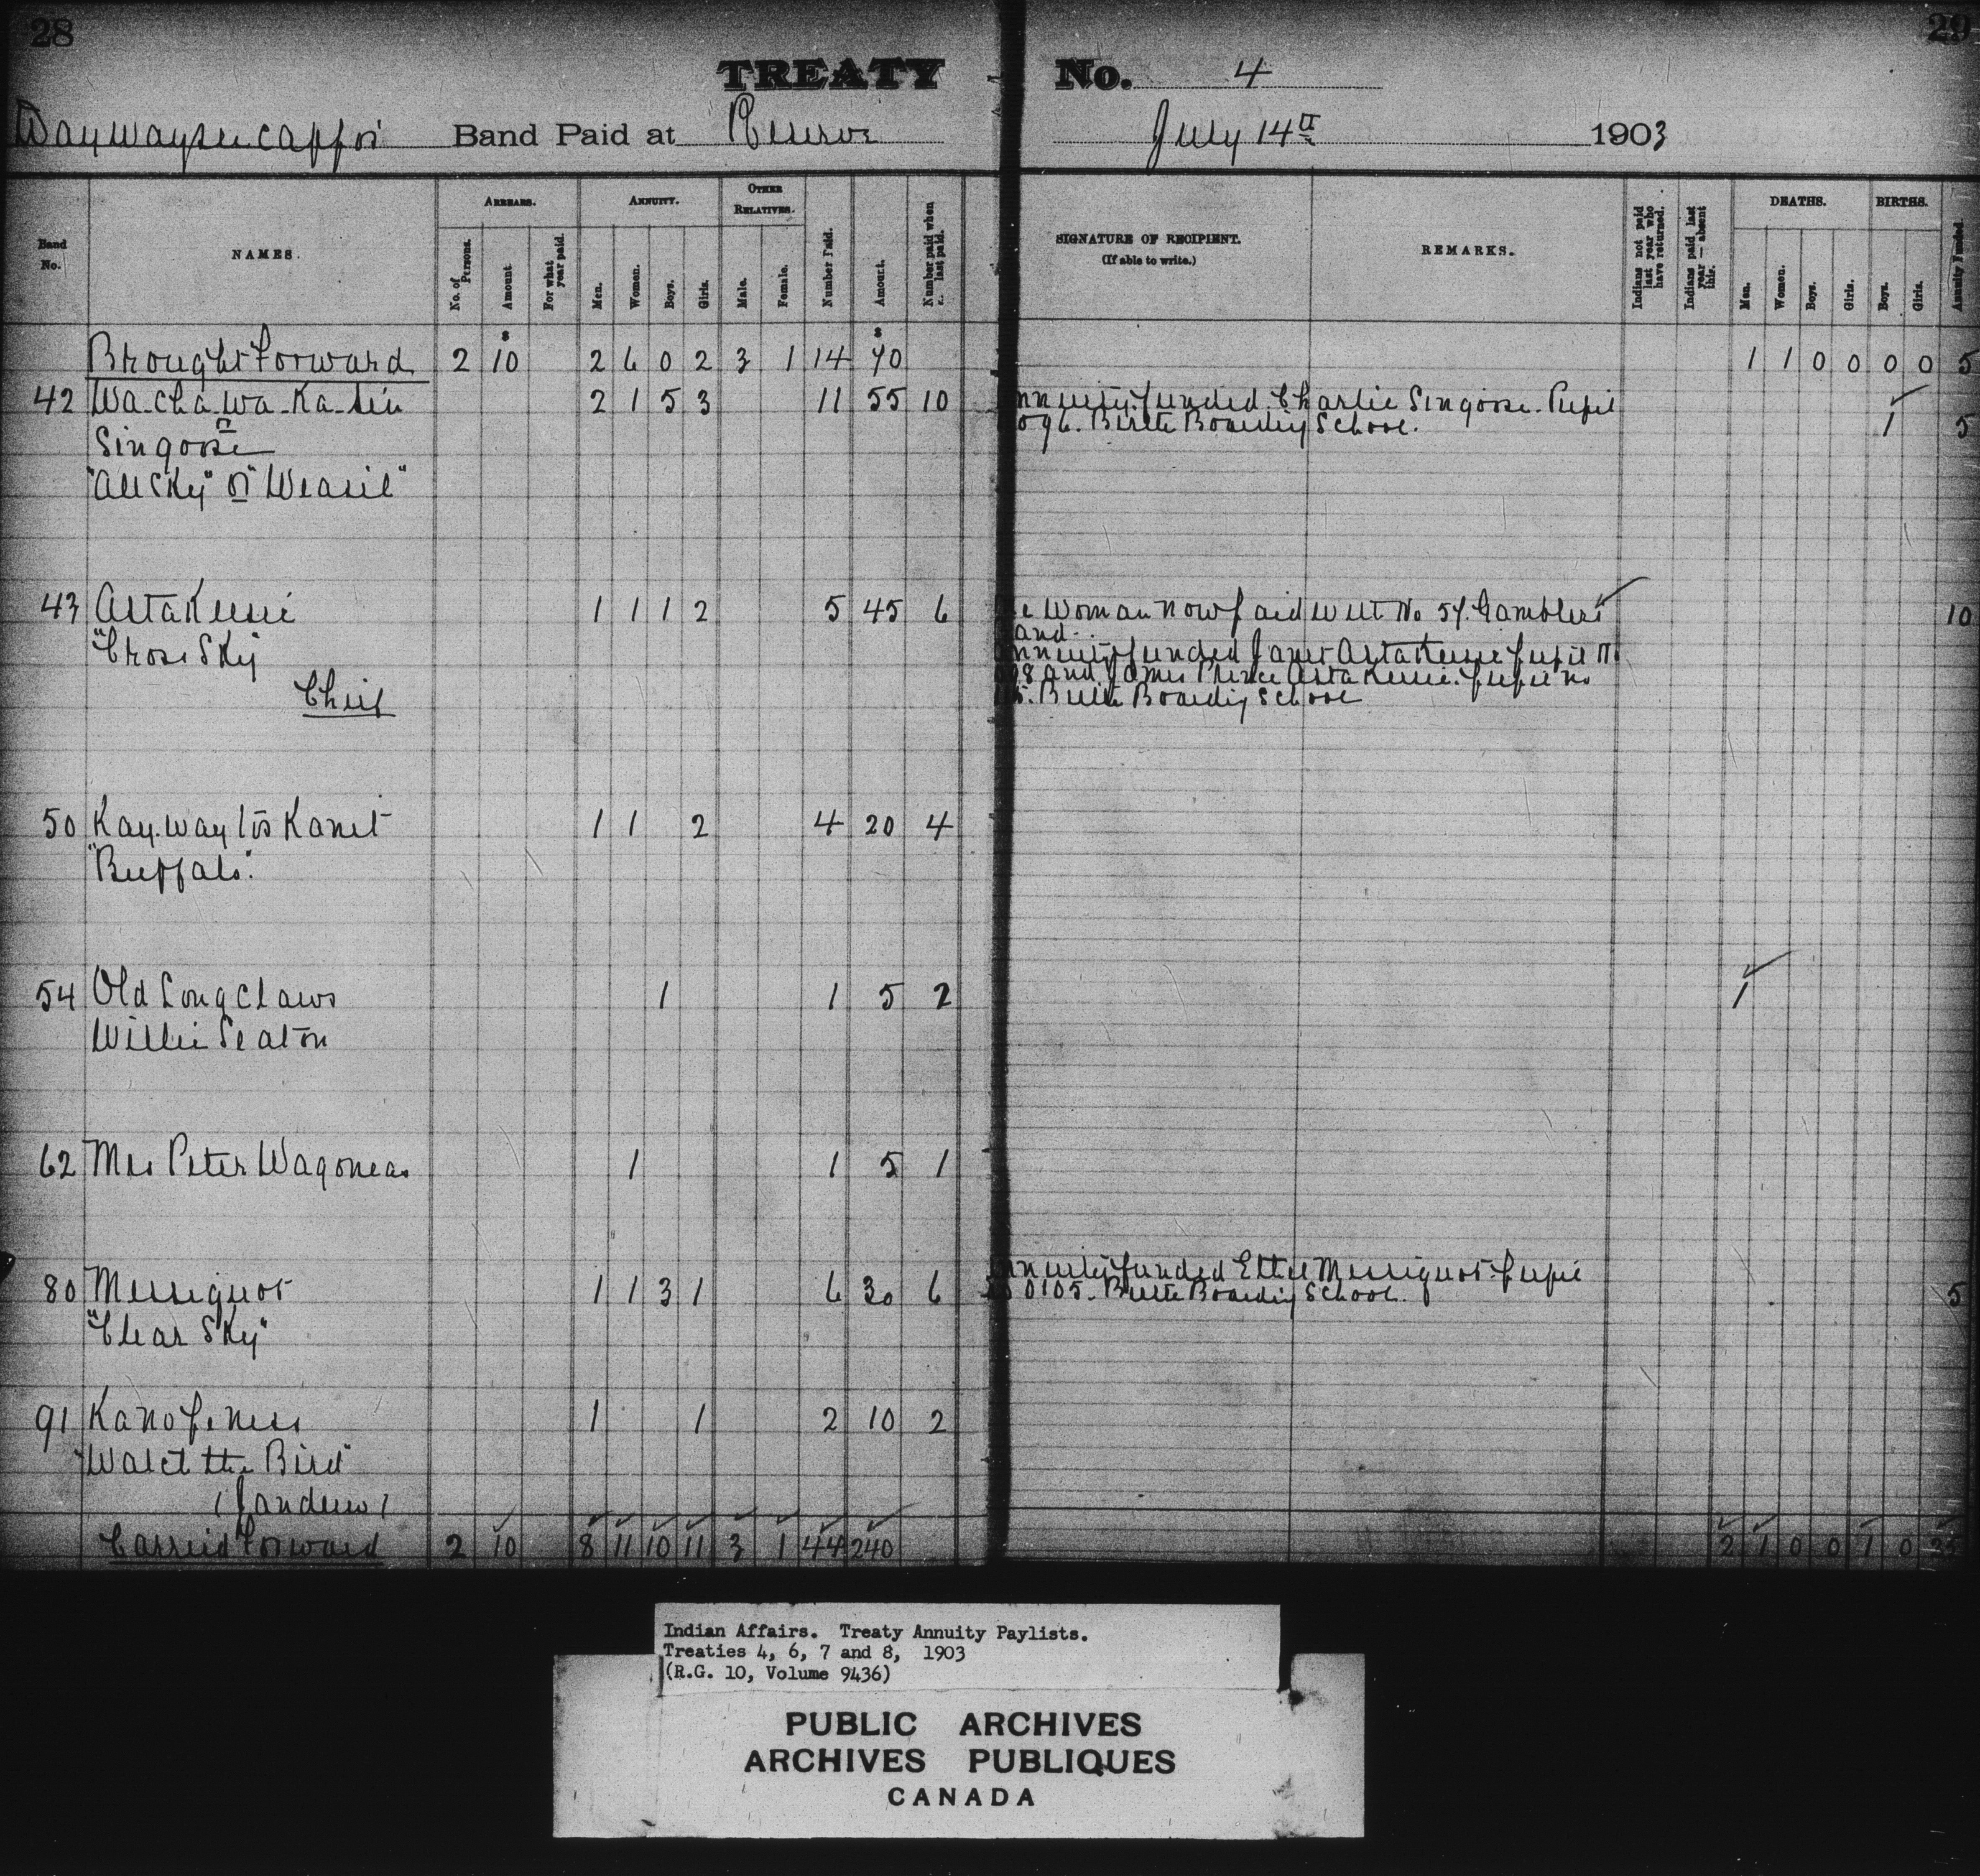 28
29
TREATY No. 4
Waywayseecappo Band Paid at Reserve July 14th 1903
Band No.
NAMES.
ARREARS.
No. of Persons.
Amount
For what year paid.
ANNUITY.
Men.
Women.
Boys.
Girls.
OTHER RELATIVES.
Male.
Female.
Number Paid.
Amount.
Number paid when last paid.
SIGNATURE OF RECIPIENT.
(If able to write.)
REMARKS.
Indians not paid last year who have returned.
Indians paid last year — absent this.
DEATHS.
Men.
Women.
Boys.
Girls.
BIRTHS.
Boys.
Girls.
Annuity Funded.
Brought Forward 2 10 2 6 0 2 3 1 14 70 1 1 0 0 0 0 5
42 Wa-cha-wa-Ka-sin 2 1 5 3 11 55 10 nnuity funded Charlie Singoose. Pupil
096. Birtle Boarding School. 1 5
or
Singoose
"All Sky" or "Weasil"
43 AstaKeesic 1 1 1 2 5 45 6 e Woman now paid with No 57. Gamblers 10
and.
"Cross Sky" nnuity funded Janet Astakeesic pupil No
8 and James Prince AstaKeesic. pupil no
Chief 5. Birtle Boarding School
50 Kay-way tos Kanet 1 1 2 4 20 4
"Buffalo".
54 Old Long Claws 1 1 5 2 1
Willie Seaton
62 Mrs Peter Wagoneas 1 1 5 1
80 Messiguot 1 1 3 1 6 30 6 nnuity funded Ethel Messiguot. pupil
0105. Birtle Boarding School. 5
"Clear Sky"
91 Kanopeness 1 1 2 10 2
"Watch the Bird"
(Jandrew)
Carried Forward 2 10 8 11 10 11 3 1 44 240 2 1 0 0 1 0 25
Indian Affairs. Treaty Annuity Paylists.
Treaties 4, 6, 7 and 8, 1903
(R.G. 10, Volume 9436)
PUBLIC ARCHIVES
ARCHIVES PUBLIQUES
CANADA